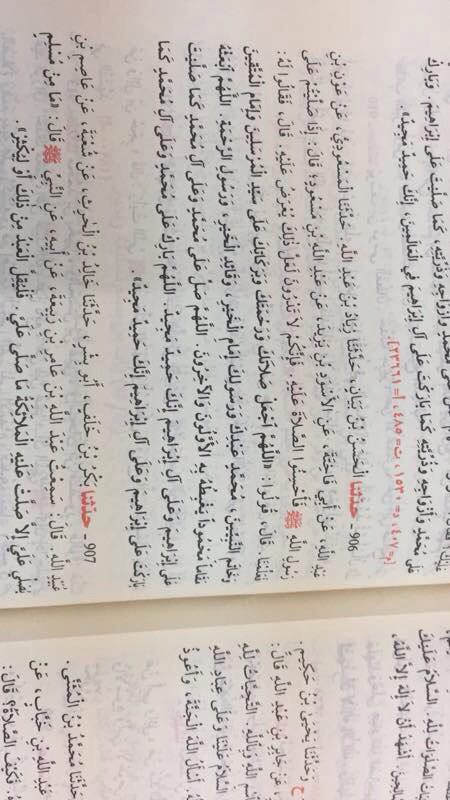 عَلَى مُحَمَّدٍ وَأَزْوَاجِهِ وَذُرِّيَّتِهِ، كَمَا صَلَّيْتَ عَلَى إِبْرَاهِيمَ. وَبَارِكْ
عَلَى مُحَمَّدٍ وَأَزْوَاجِهِ وَذُرِّيَّتِهِ كَمَا بَارَكْتَ عَلَى آلِ إِبْرَاهِيمَ فِي الْعَالَمِينَ، إِنَّكَ حَمِيدٌ مَجِيدٌ».
906 - حدّثنا الْحُسَيْنُ بْنُ بَيَانٍ، حَدَّثَنَا زِيَادُ بْنُ عَبْدِ اللَّهِ. حَدَّثَنَا الْمَسْعُودِيُّ، عَنْ عَوْنِ بْنِ
عَبْدِ اللَّهِ، عَنْ أَبِي فَاخِتَةَ، عَنِ الأَسْوَدِ بْنِ يَزِيدَ، عَنْ عَبْدِ اللَّهِ بْنِ مَسْعُودٍ؛ قَالَ: إِذَا صَلَّيْتُمْ عَلَى
رَسُولِ اللَّهِ ﷺ فَأَحْسِنُوا الصَّلَاةَ عَلَيْهِ. فَإِنَّكُمْ لَا تَدْرُونَ لَعَلَّ ذَلِكَ يُعْرَضُ عَلَيْهِ. قَالَ، فَقَالُوا لَهُ:
فَعَلِّمْنَا. قَالَ، قُولُوا: «اللَّهُمَّ اجْعَلْ صَلَاتَكَ وَرَحْمَتَكَ وَبَرَكَاتِكَ عَلَى سَيِّدِ الْمُرْسَلِينَ وَإِمَامِ الْمُتَّقِينَ
وَخَاتَمِ النَّبِيِّينَ، مُحَمَّدٍ عَبْدِكَ وَرَسُولِكَ إِمَامِ الْخَيْرِ، وَقَائِدِ الْخَيْرِ، وَرَسُولِ الرَّحْمَةِ. اللَّهُمَّ ابْعَثْهُ
مَقَامًا مَحْمُودًا يَغْبِطُهُ بِهِ الأَوَّلُونَ وَالآخِرُونَ. اللَّهُمَّ صَلِّ عَلَى مُحَمَّدٍ وَعَلَى آلِ مُحَمَّدٍ كَمَا صَلَّيْتَ
عَلَى إِبْرَاهِيمَ وَعَلَى آلِ إِبْرَاهِيمَ إِنَّكَ حَمِيدٌ مَجِيدٌ. اللَّهُمَّ بَارِكْ عَلَى مُحَمَّدٍ وَعَلَى آلِ مُحَمَّدٍ كَمَا
بَارَكْتَ عَلَى إِبْرَاهِيمَ وَعَلَى آلِ إِبْرَاهِيمَ إِنَّكَ حَمِيدٌ مَجِيدٌ».
907 - حدّثنا بَكْرُ بْنُ خَلَفٍ، أَبُو بِشْرٍ، حَدَّثَنَا خَالِدُ بْنُ الْحٰرِثِ، عَنْ شُعْبَةَ، عَنْ عَاصِمِ بْنِ
عُبَيْدِ اللَّهِ. قَالَ: سَمِعْتُ عَبْدَ اللَّهِ بْنَ عَامِرِ بْنِ رَبِيعَةَ، عَنْ أَبِيهِ، عَنِ النَّبِيِّ ﷺ قَالَ: «مَا مِنْ مُسْلِمٍ
يُصَلِّي عَلَيَّ إِلَّا صَلَّتْ عَلَيْهِ الْمَلَائِكَةُ مَا صَلَّى عَلَيَّ. فَلْيُقِلَّ الْعَبْدُ مِنْ ذَلِكَ أَوْ لِيُكْثِرْ».
الصَّلَوٰتُ لِلَّهِ. السَّلَامُ عَلَيْكَ
أَشْهَدُ أَنْ لَا إِلٰهَ إِلَّا اللَّهُ،
وَحَدَّثَنَا يَحْيَىٰ بْنُ حَكِيمٍ.
عَنْ جَابِرِ بْنِ عَبْدِ اللَّهِ قَالَ:
بِاسْمِ اللَّهِ وَبِاللَّهِ. التَّحِيَّاتُ لِلَّهِ
السَّلَامُ عَلَيْنَا وَعَلَى عِبَادِ اللَّهِ
أَسْأَلُ اللَّهَ الْجَنَّةَ، وَأَعُوذُ
حَدَّثَنَا مُحَمَّدُ بْنُ الْمُثَنَّى.
عَبْدِ اللَّهِ بْنِ خَبَّابٍ، عَنْ
فَكَيْفَ الصَّلَاةُ؟ قَالَ: